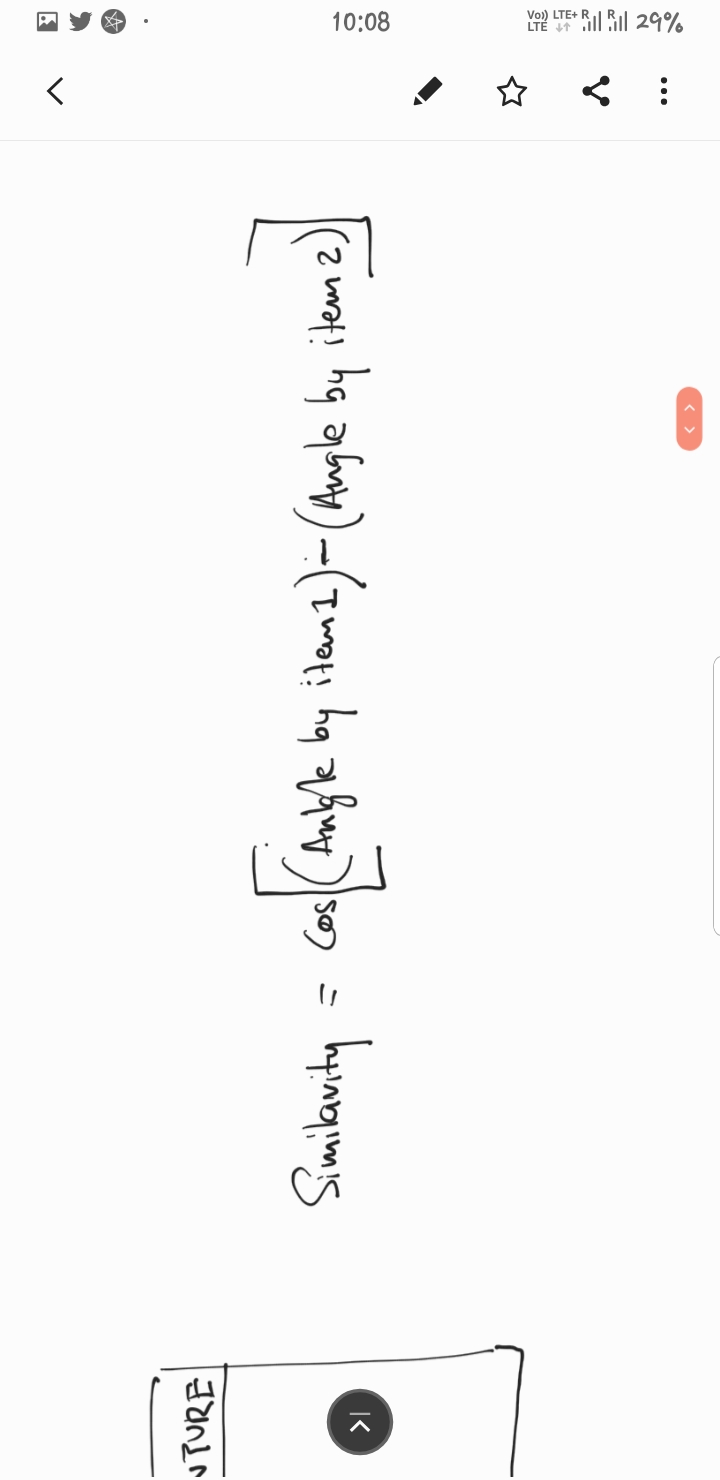 10:08
Vo)) LTE+ R R 29%
LTE
Similarity = Cos [(Angle by item 1) - (Angle by item 2)]
NTURE